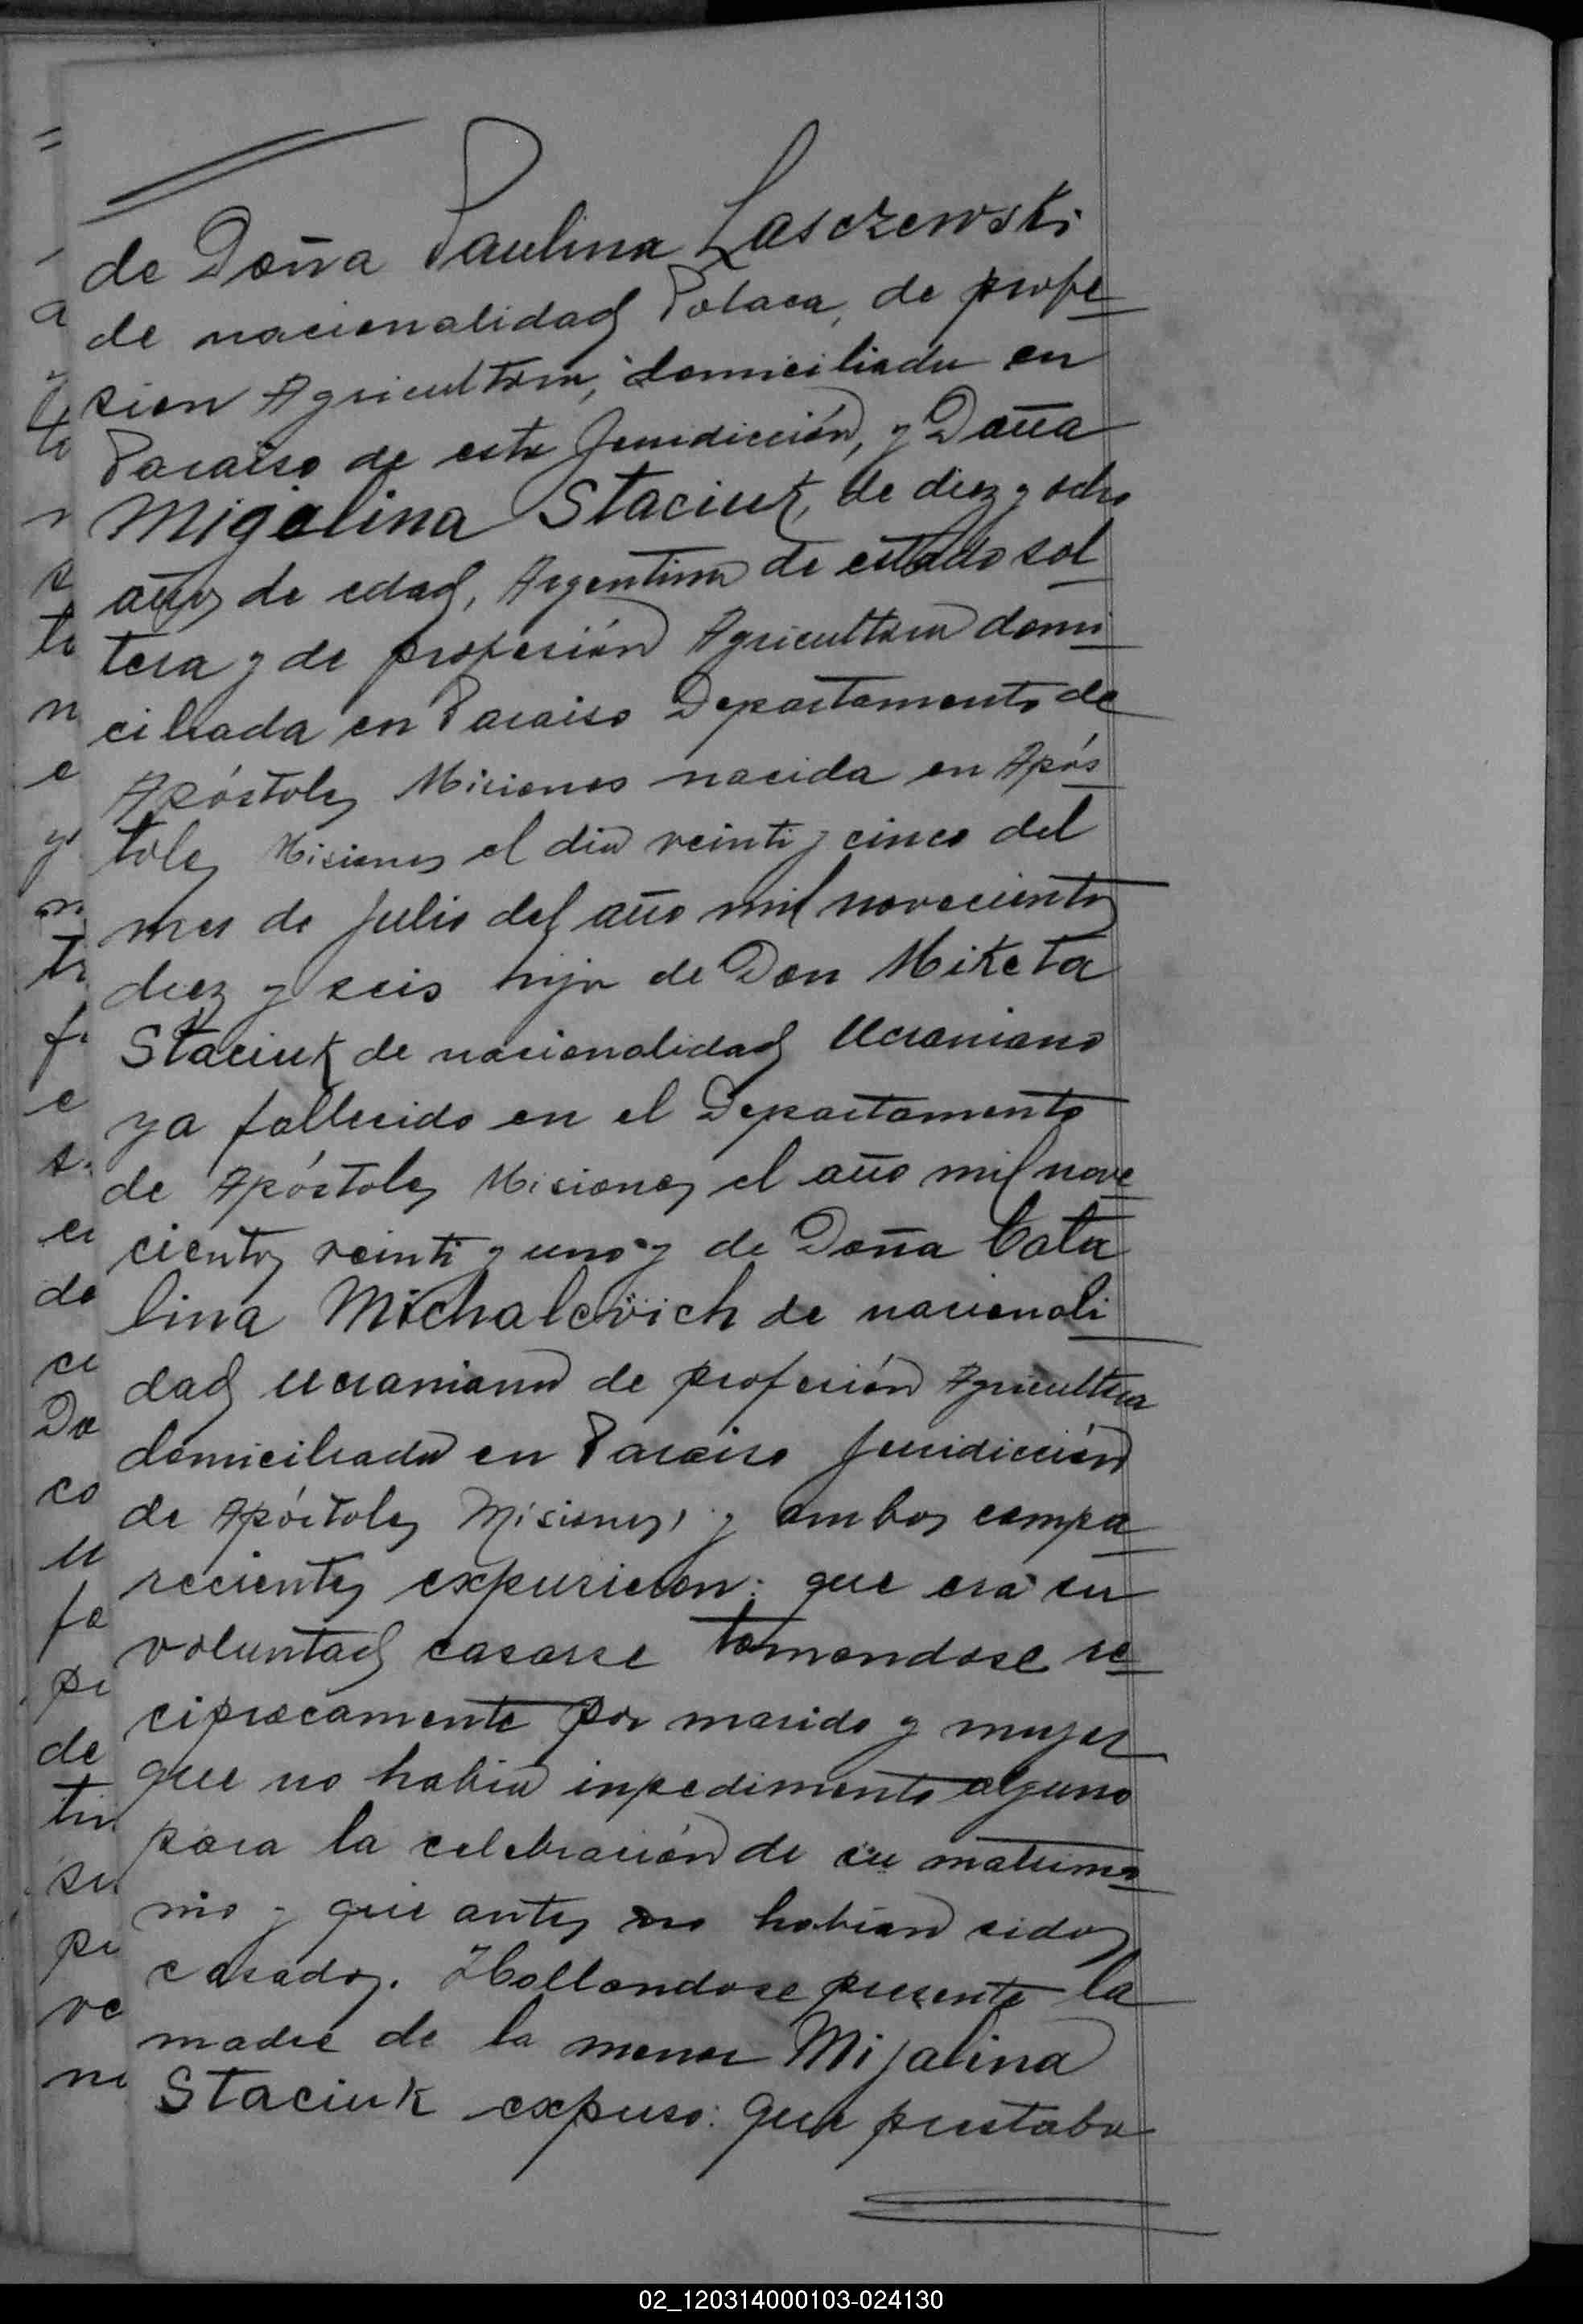 de Doña Paulina Lasczewski
de nacionalidad Polaca, de profe
sion Agricultora, domiciliada en
Paraiso de esta Juridicción, y Doña
Migalina Staciuk, de diez y ocho
años de edad, Argentina de estado sol
tera y de profesión Agricultora domi
ciliada en Paraiso Departamento de
Apóstoles Misiones nacida en Após
toles Misiones el dia veinti y cinco del
mes de Julio del año mil novecientos
diez y seis hija de Don Miketa
Staciuk de nacionalidad Ucraniano
ya fallecido en el Departamento
de Apóstoles Misiones el año mil nove
cientos veinti y uno y de Doña Cata
lina Michalevich de nacionali
dad ucraniana de profesión Agricultora
domiciliada en Paraiso Juridicción
de Apóstoles Misiones, y ambos compa
recientes expusieron: que era su
voluntad casarse tomandose re
ciprocamente por marido y mujer
que no habia inpedimento alguno
para la celebración de su matrimo
nio y que antes no habian sidos
casados. Hallandose presente la
madre de la menor Mijalina
Staciuk expuso: Que prestaba
02_120314000103-024130